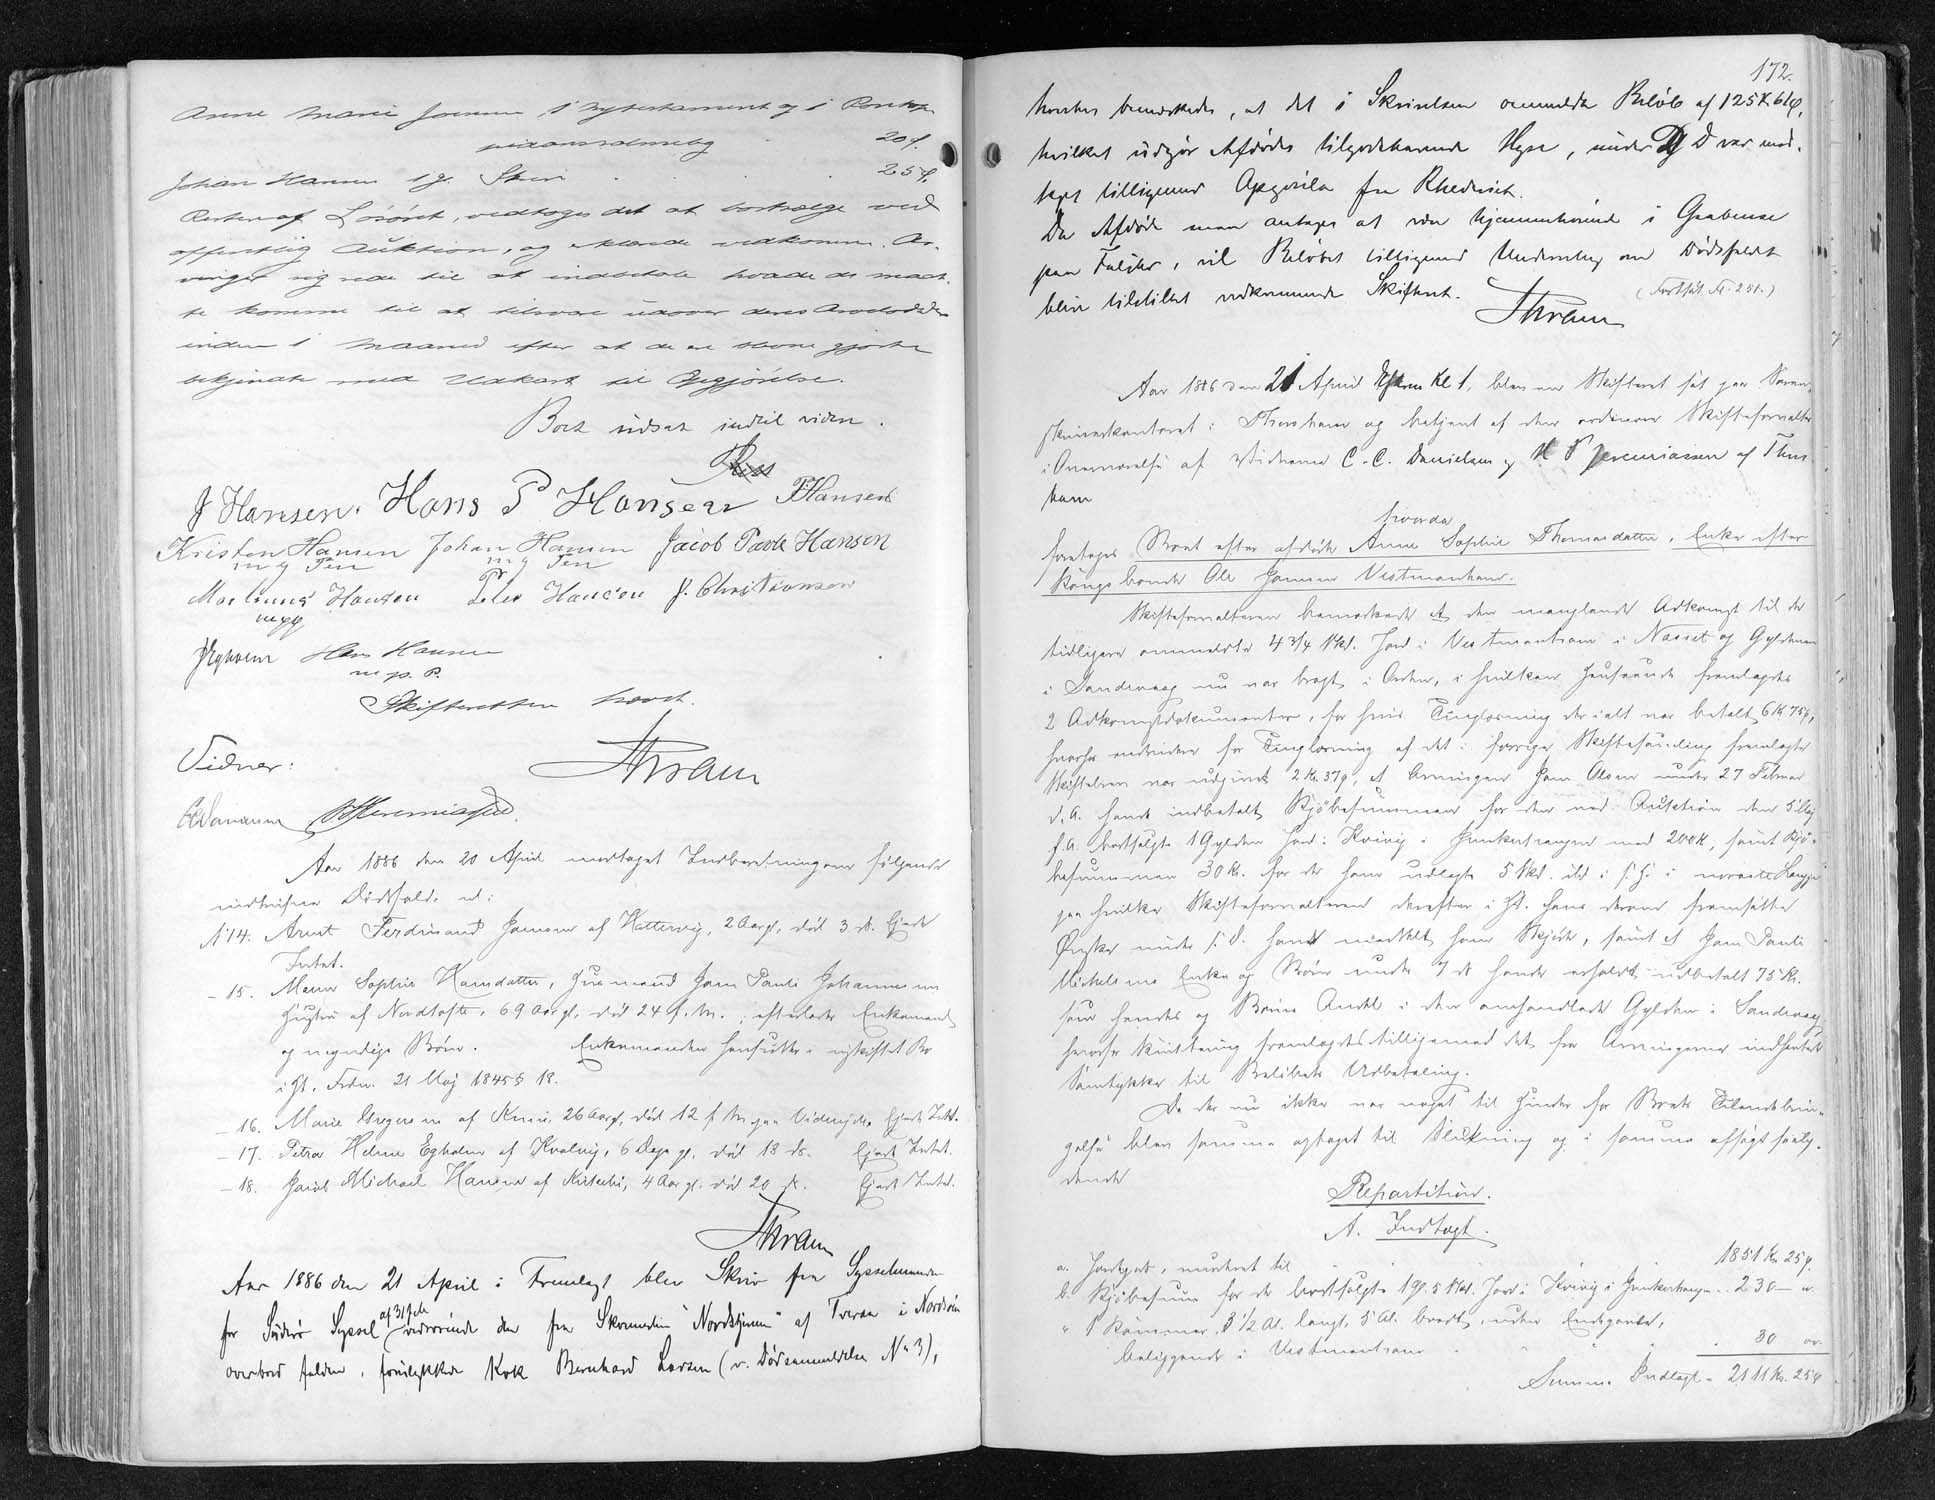 Anne Marie Joensen 1 Nytestament og 1
20 ø.
Johan Hansen 1 g. Skoe . . . 25 ø.
Resten af Løsøret, vedtoges det at bortsælge ved
offentlig Auktion, og erklærede vedkomm. Ar-
vinger sig rede til at indbetale hvad de maat-
te komme til at tilsvare udover deres Arvelodder
inden 1 Maaned efter at de ere blevne gjorte
bekjendte med Udkast til Opgjørelse.
Boet udsat indtil videre.
J Hansen. Hans P Hansen JHansen
Kristen Hansen Johan Hansen Jacob Pavle Hansen
m g Pen m g Pen
Martinus Hansen Peter Hansen J. Christiansen
m g P
Hans Hansen
m. p. P.
Skifteretten hævet.
Vidner: Thram
CCDanielsen HPJeremiassen.
Aar 1886 den 20 April modtaget Indberetningerne følgende
indtrufne Dødsfald. nl:
N. 14. Arent Ferdinand Joensen af Hattervig, 2 Aar gl., død 3 ds. Ejede
Intet.
- 15. Maren Sophie Hansdatter, Husmand Joen Pauli Johannesens
Hustru af Nordtofte, 69 Aar gl., død 24 f. M., efterlader Enkemand
og myndige Børn. Enkemanden hensidder i uskiftet Bo
i H. t. Frdn. 21 Maj 1845 § 18.
- 16. Marie Gregersen af Kunø, 26 Aar gl., død 12 f. M. paa Viderejde, Ejede Intet.
- 17. Petra Helene Egholm af Hvalvig, 6 Dage gl. død 18 ds. Ejede Intet.
- 18. Jacob Michael Hansen af Kirkebø, 4 Aar gl. død 20 ds. Ejede Intet.
Thram
Aar 1886 den 21 April: Fremlagt blev Skriv fra Sysselmanden
for Suderø Syssel af 31 f. M. vedrørende den fra Skonnerten "Nordstjernen" af Tveraa i Nordsøen
overbord faldne, forulykkede Kok Bernhard Larsen (v. Dødsanmeldelse No 3),
172.
hvorhos bemærkedes, at det i Skrivelsen ommeldte Beløb af 125 K. 61 ø,
hvilket udgjør Afdødes tilgodehavende Hyre, under D. D. var mod-
taget tilligemed Opgjørelse fra Rhederiet.
Da Afdøde man antages at være hjemmehørende i Gaabense
paa Falster, vil Beløbet tilligemed Underretning om Dødsfaldet
blive tilstillet vedkommende Skifteret. (Fortsat Fol. 251.)
Thram
Aar 1886 den 21 April Efterm Kl 1, blev en Skifteret sat paa Soren-
skriverkontoret i Thorshavn og betjent af den ordinære Skifteforvalter
i Overværelse af Vidnerne C. C. Danielsen og H P Jeremiassen af Thors-
havn
hvorda
foretoges Boet efter afdøde Anne Sophie Thomasdatter, Enke efter
Kongsbonde Ole Joensen Vestmanhavn.
Skifteforvalteren bemærkede at den manglende Adkomst til de
tidligere ommeldte 4 3/4 Skd. Jord i Vestmanhavn i Nesset og Gylden
i Sandevaag nu var bragt i Orden, i hvilken Henseende fremlagdes
2 Adkomstdokumenter, for hvis Tinglæsning der ialt var betalt 6 Kr 75 ø,
hvorhos endvidere for Tinglæsning af det i forrige Skiftesamling fremlagte
Skiftebrev var udgivet 2 Kr. 37 ø, at Arvingen Joen Olsen under 27 Februar
d. A. havde indbetalt Kjøbesummen for den ved Auktion den 5 Maj
f. A. bortsolgte 1 Gylden Jord i Kvivig i Junkertvangen med 200 K, samt Kjø-
besummen 30 Kr. for de ham udlagte 5 Skd. ibd. i s. H. i
paa hvilke Skifteforvalteren derefter i H. t. hans derom fremsatte
Ønsker under s. D. havde meddelt ham Skjøde, samt at Joen Pauli
Michelsens Enke og Børn under 7 ds havde erholdt udbetalt 75 Kr.
som hendes og Børns Andel i den omhandlede Gylden i Sandevaag,
hvorfor Kvittering fremlagdes tilligemed det fra Arvingerne indhentede
Samtykke til Beløbets Udbetaling.
Da der nu ikke var noget til Hinder for Boets Tilendebrin-
gelse blev samme optaget til Slutning og i samme afsagt saaly-
dende
Repartition.
A. Indtægt.
a. Jordgods, vurderet til 1851 Kr. 25 ø.
b. Kjøbesum for de bortsolgte 1 gl. 5 Skd. Jord i Kvivig i Junkertvangen . . 230 — "
" 1 Kammer, 3 1/2 Al. langt, 5 Al. bredt, uden Endegavle,
beliggende i Vestmanhavn . . . 30 "
Summa Indtægt - 2111 Kr. 25 ø